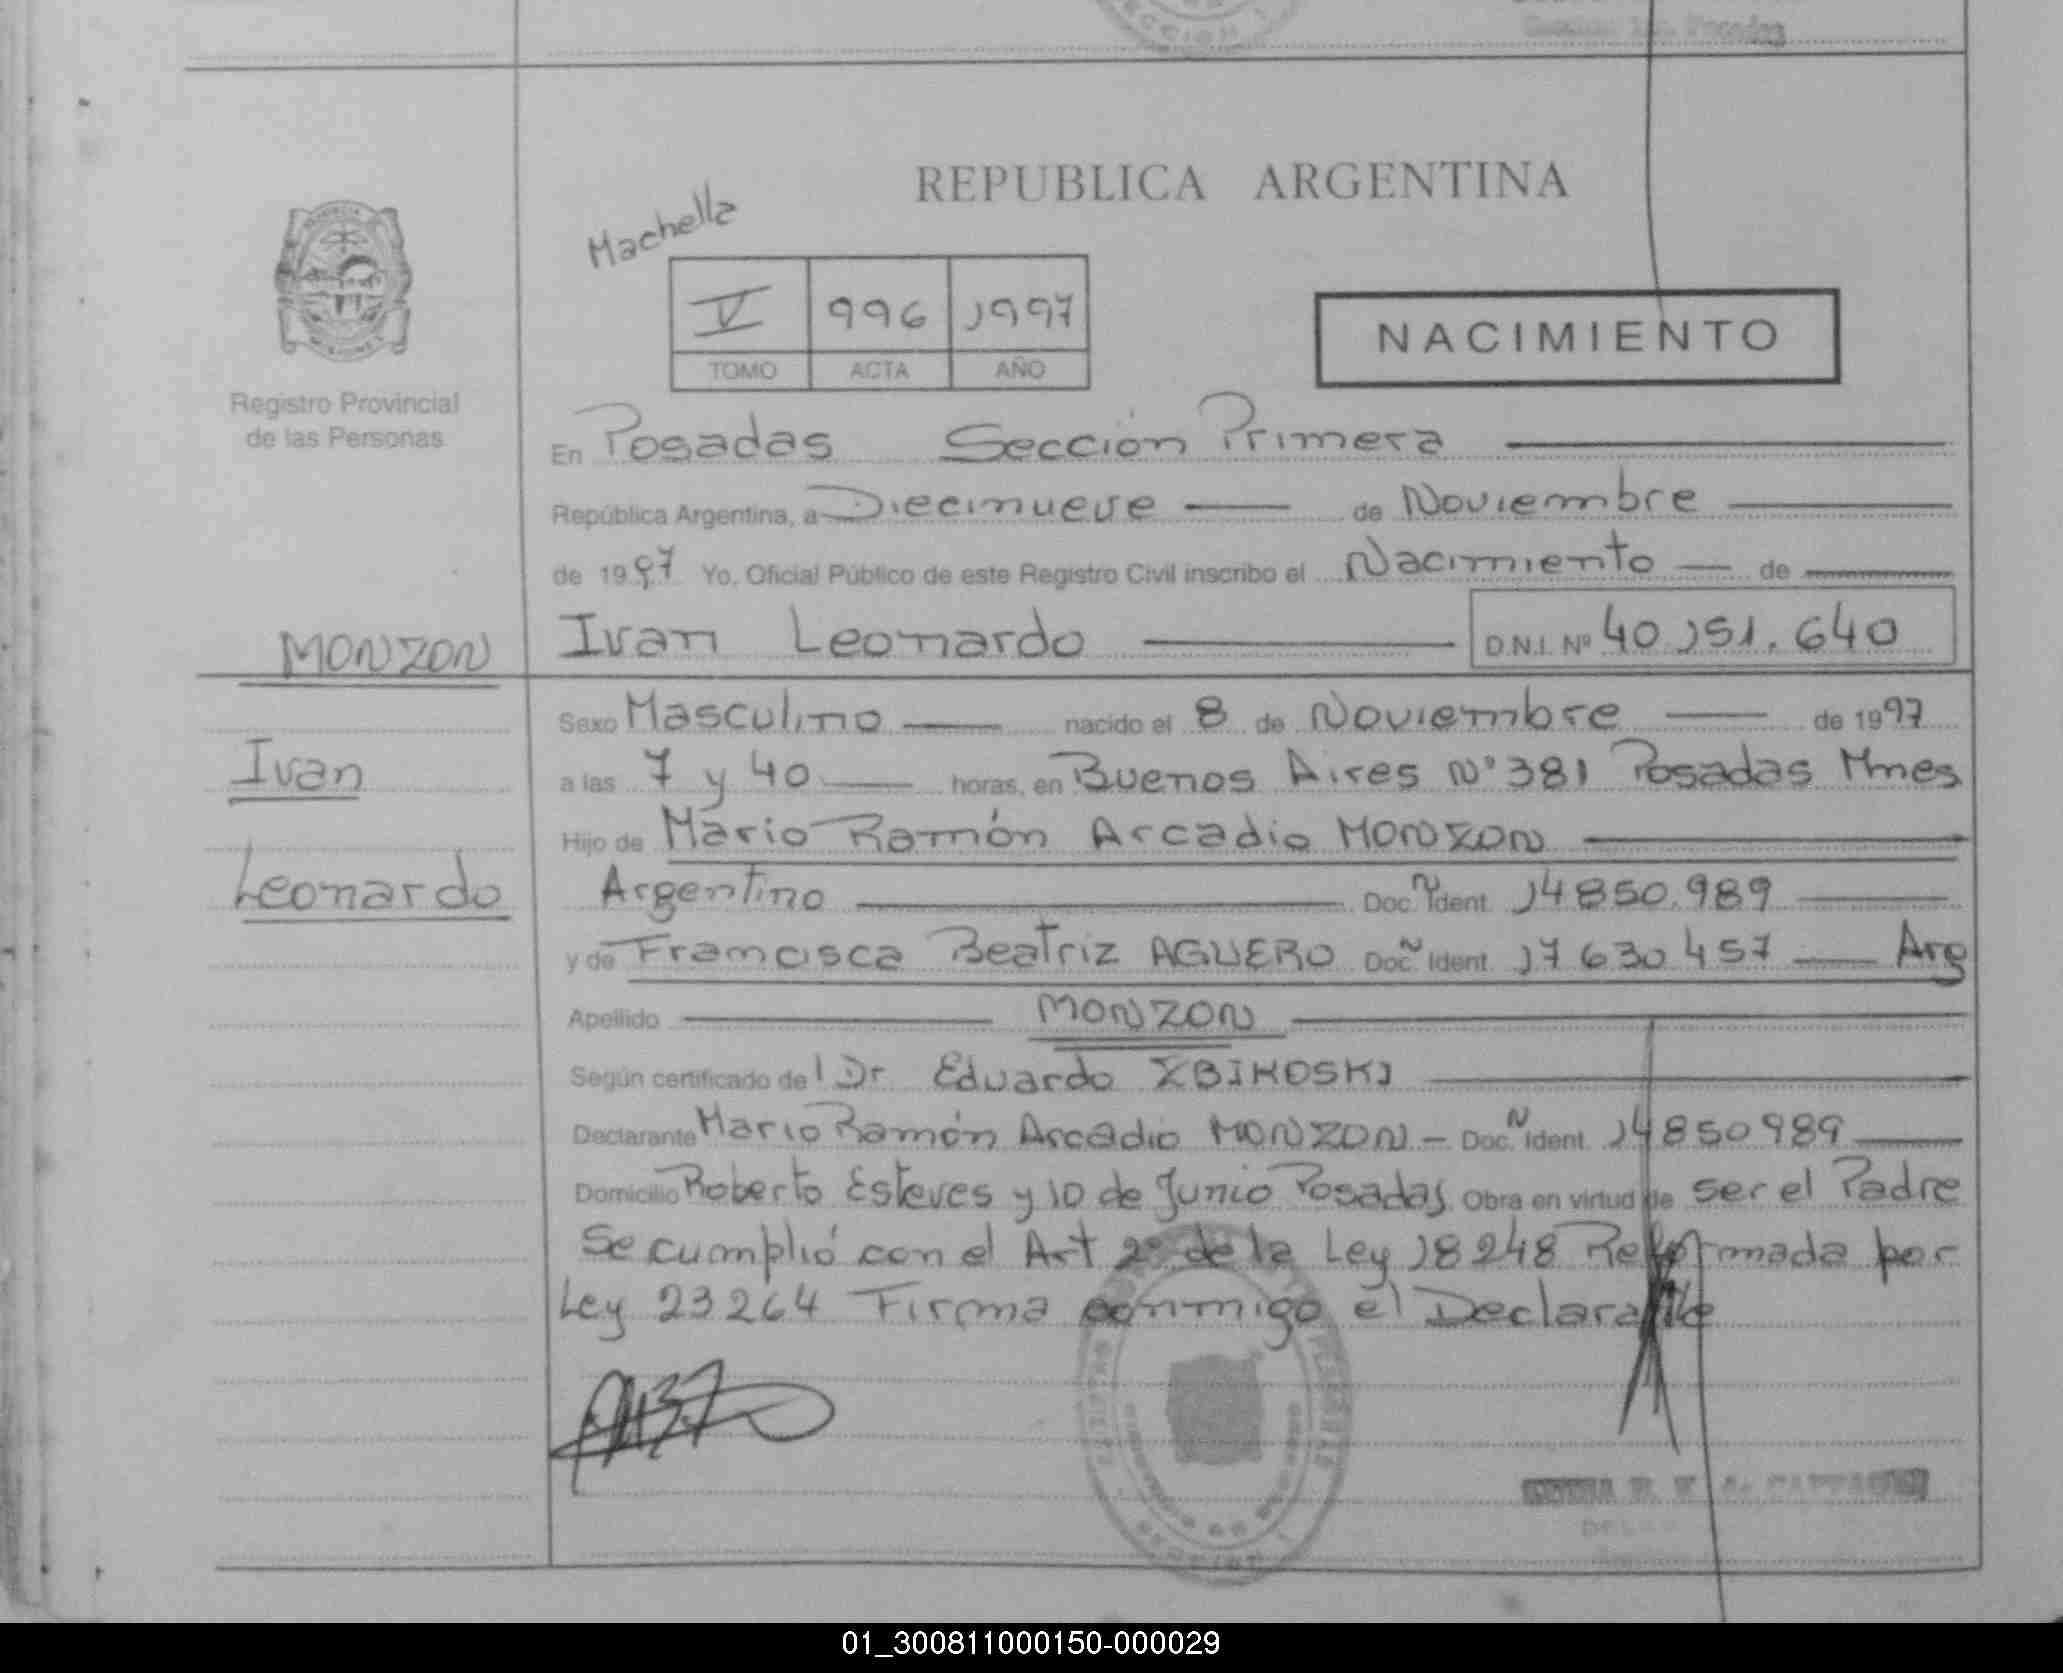 REPUBLICA ARGENTINA
Machella
V 996 1997
TOMO ACTA AÑO
NACIMIENTO
Registro Provincial
de las Personas
En Posadas Sección Primera
República Argentina, a Diecinueve de Noviembre
de 1997 Yo, Oficial Público de este Registro Civil inscribo el Nacimiento de
MONZON
Ivan Leonardo D.N.I. Nº 40.151.640
Sexo Masculino nacido el 8 de Noviembre de 1997
Ivan
a las 7 y 40 horas, en Buenos Aires Nº 381 Posadas Mnes
Hijo de Mario Ramón Arcadio MONZON
Leonardo
Argentino Doc. N Ident. 14850.989
y de Francisca Beatriz AGUERO Doc. N Ident. 17 630 457 Arg
Apellido MONZON
Según certificado del Dr Eduardo ZBIKOSKI
Declarante Mario Ramón Arcadio MONZON - Doc. N Ident. 14850989
Domicilio Roberto Esteves y 10 de Junio Posadas Obra en virtud de ser el Padre
Se cumplió con el Art 2º de la Ley 18248 Reformada por
Ley 23264 Firma conmigo el Declarante
01_300811000150-000029